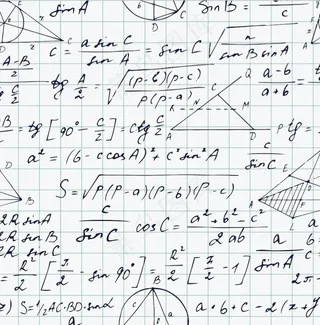 sin A
sin B = / c
c = a sin C / sin A = sin C √ / sin B sin A
A-B / 2
tg A/2 = √(p-b)(p-c) / p(p-a)
a-b / a+b =
B / 2 = tg [90° - C/2] = ctg C/2
a² = (b - c cos A)² + c² sin² A
c / sin C
S = √p(p-a)(p-b)(p-c)
2R sin A
2R sin B
2R sin C
c / sin C
cos C = a² + b² - c² / 2ab
a / sin A
= R²/2 [π/2 - sin 90°] = R²/2 [π/2 - 1]
S = 1/2 AC·BD·sin α
a + b + c - 2(x + y